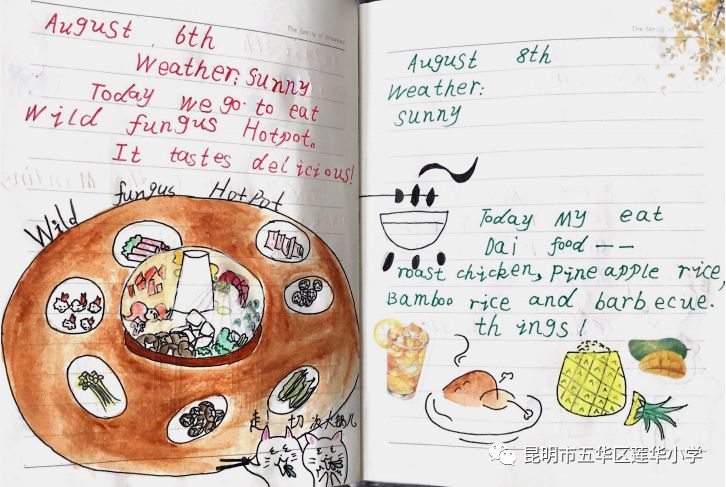 The family of firewood
August 6th
Weather: Sunny
Today we go to eat
Wild fungus Hotpot.
It tastes delicious!
Wild fungus HotPot
August 8th
Weather:
sunny
Today My eat
Dai food ——
roast chicken, Pineapple rice,
Bamboo rice and barbecue.
things!
昆明市五华区莲华小学